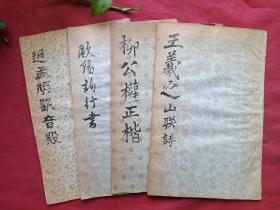 王羲之山聨詩
柳公權正楷
歐陽詢行書
趙孟頫觀音殿